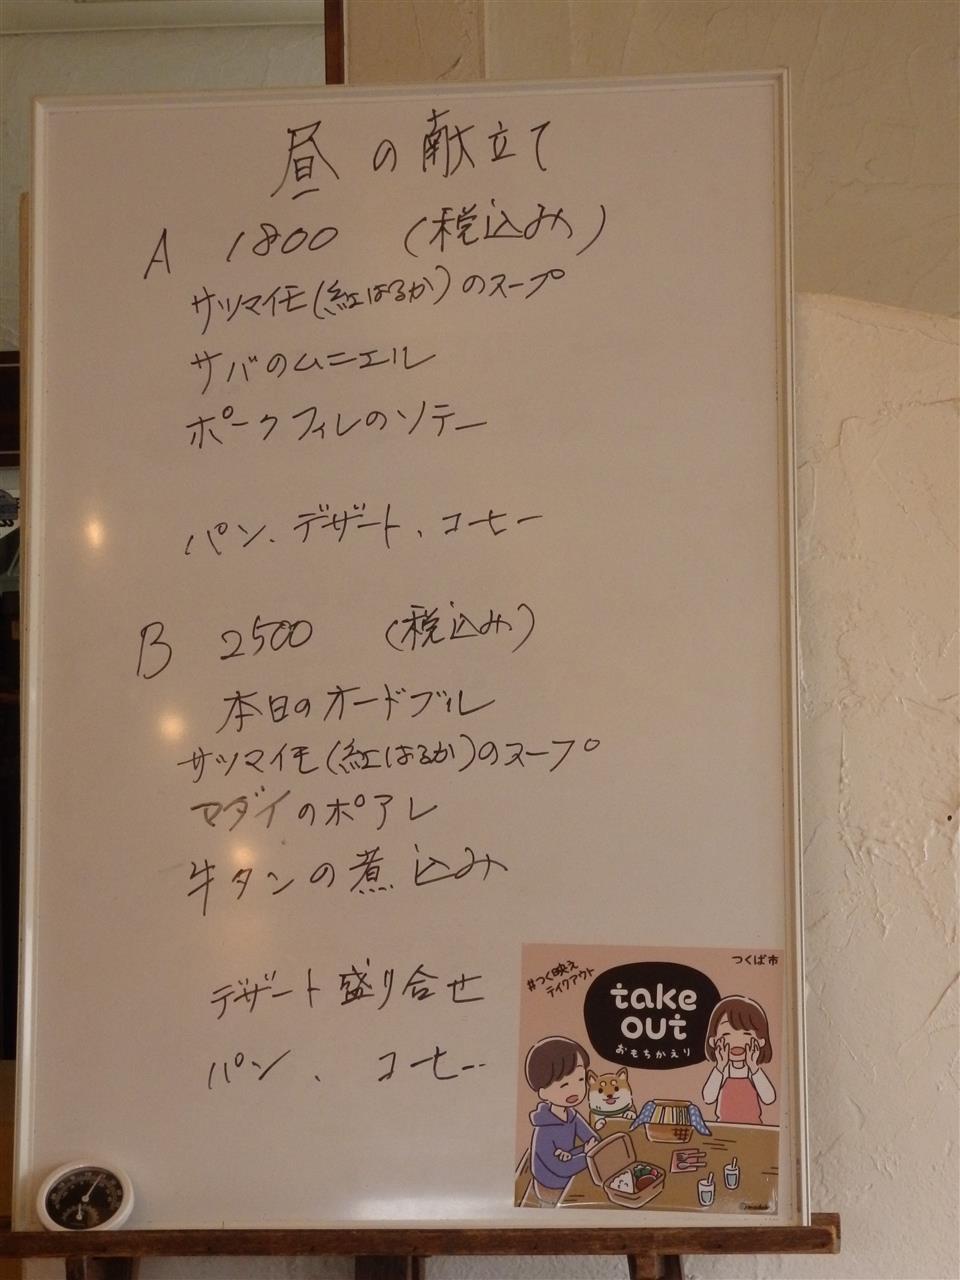 昼の献立て
A 1800 (税込み)
サツマイモ(紅はるか)のスープ
サバのムニエル
ポークフィレのソテー
パン、デザート、コーヒー
B 2500 (税込み)
本日のオードブル
サツマイモ(紅はるか)のスープ
マダイのポアレ
牛タンの煮込み
デザート盛り合せ
パン、コーヒー
つくば市
#つく映え
テイクアウト
take
out
おもちかえり